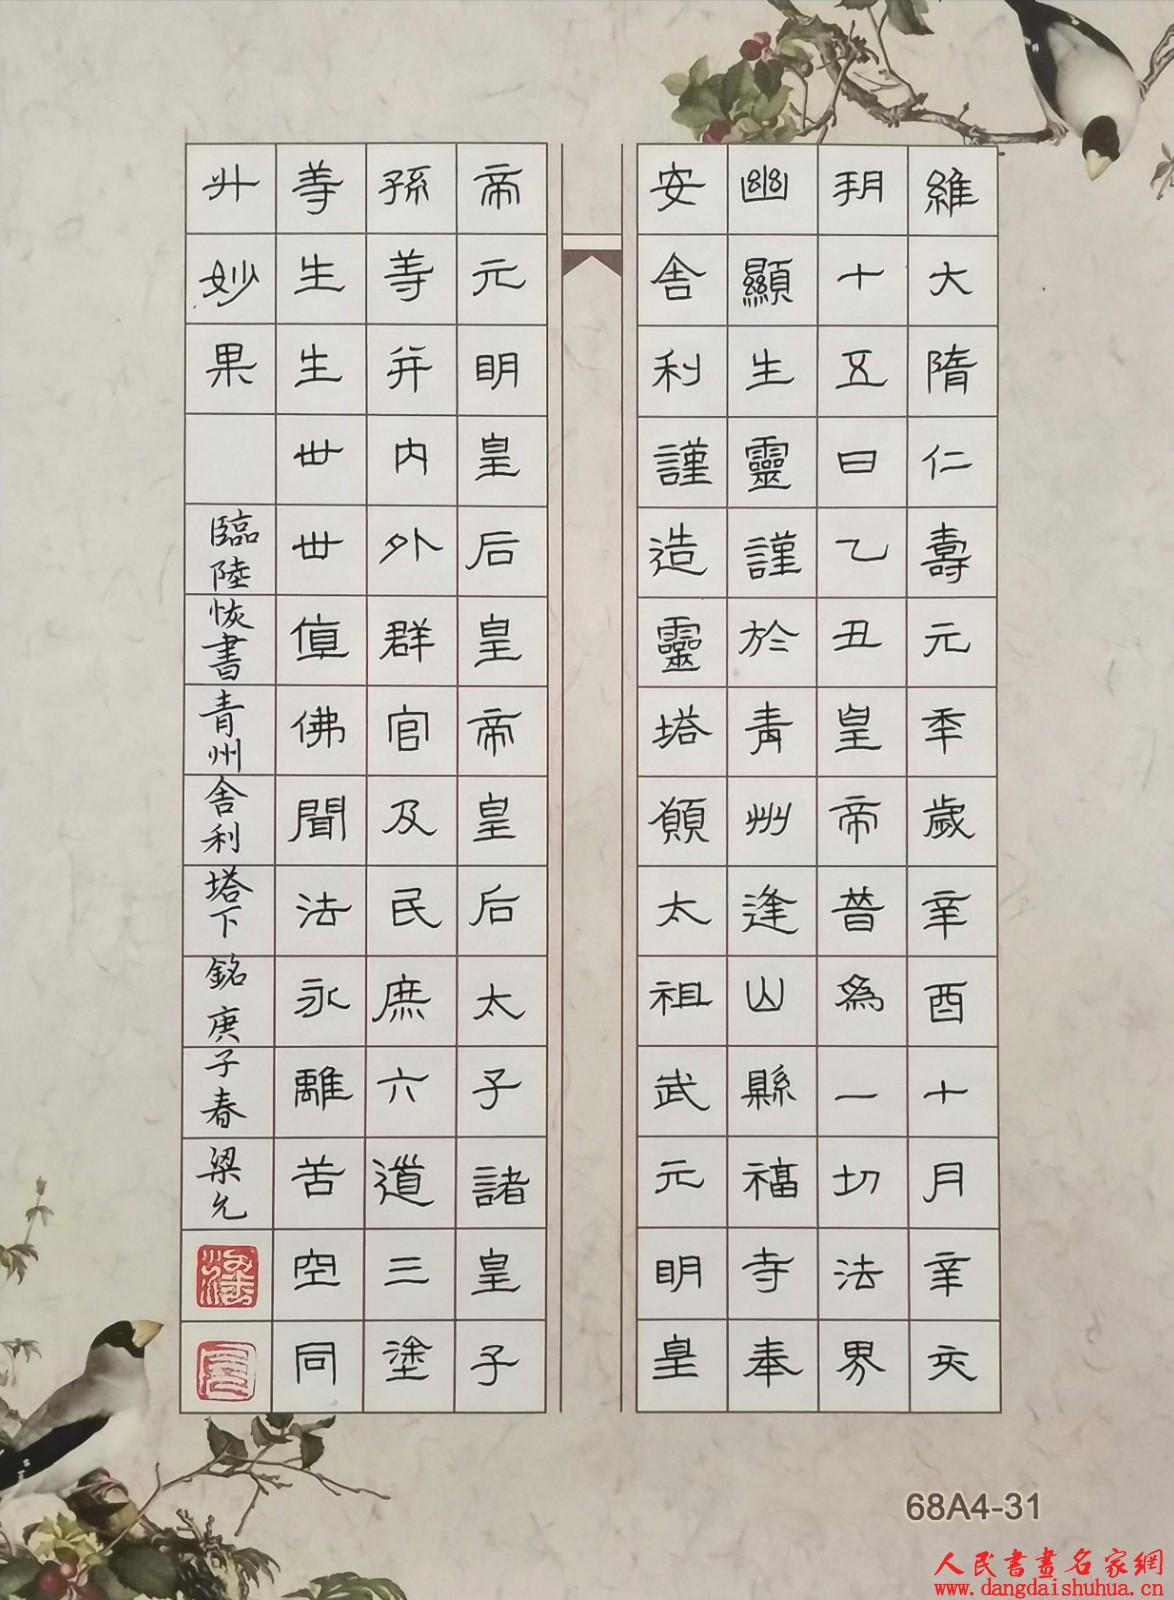 維大隋仁壽元秊歲辛酉十月辛亥
朔十五日乙丑皇帝普為一切法界
幽顯生靈謹於青州逢山縣福寺奉
安舍利謹造靈塔願太祖武元明皇
帝元明皇后皇帝皇后太子諸皇子
孫等并內外群官及民庶六道三塗
等生生世世值佛聞法永離苦空同
升妙果
臨陸恢書青州舍利塔下銘庚子春梁允
68A4-31
人民書畫名家網
www.dangdaishuhua.cn